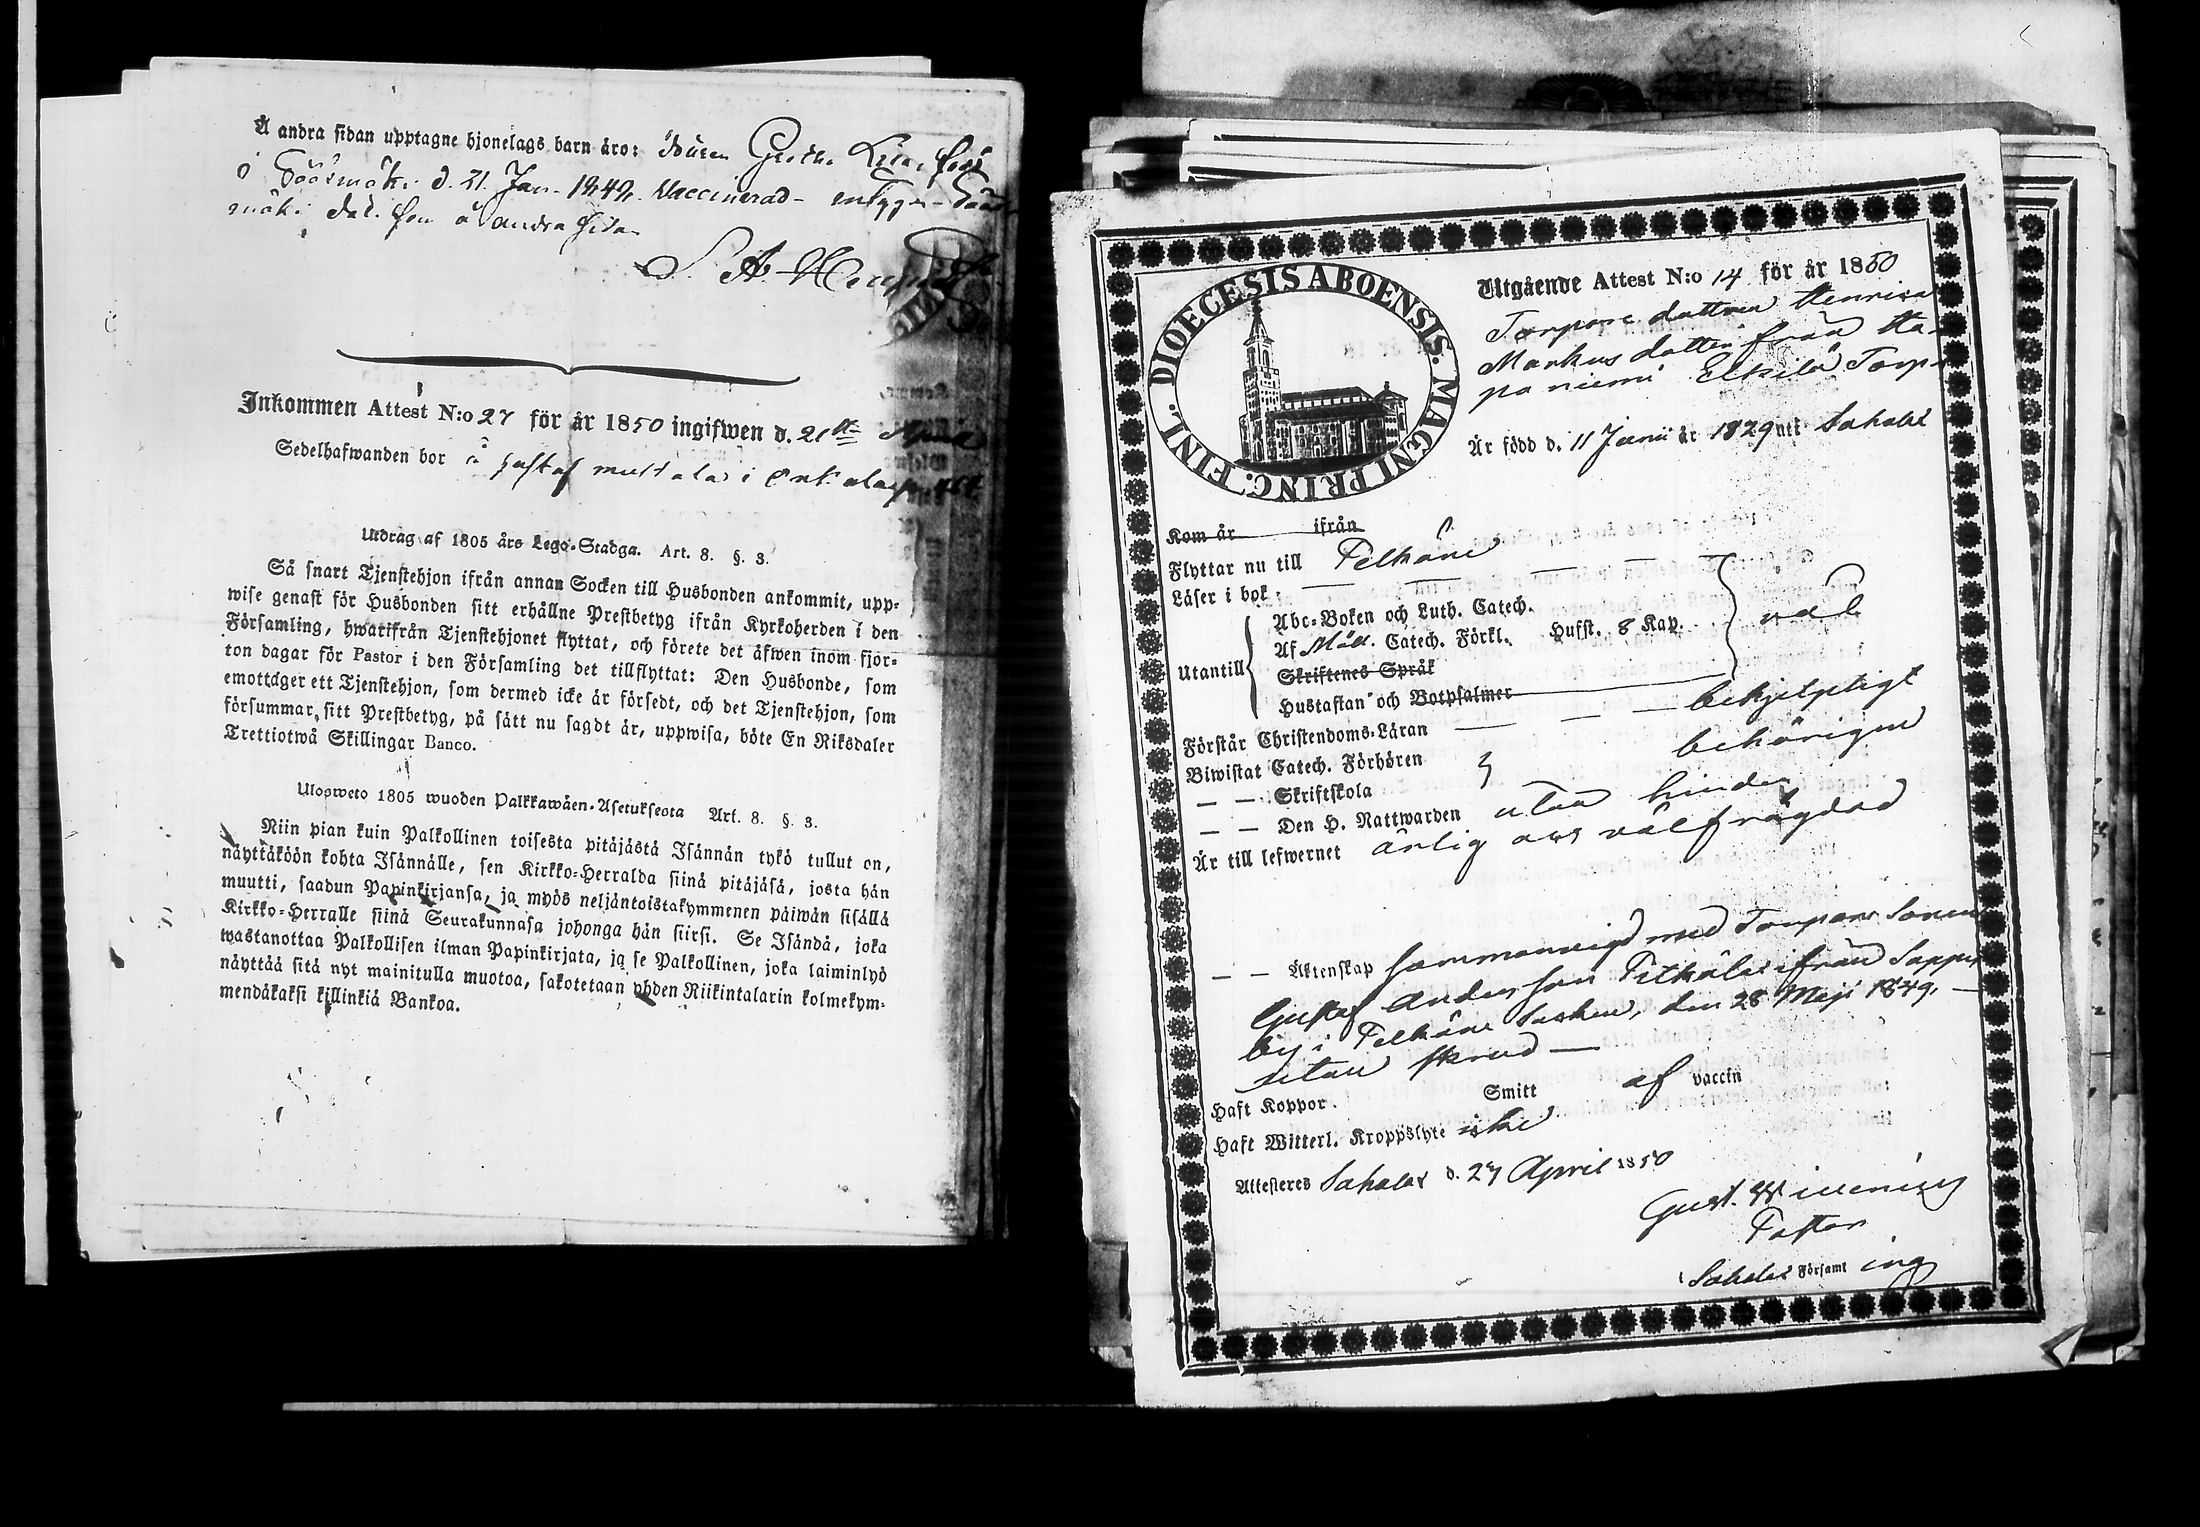 Å andra sidan upptagne hjonelags barn äro: Gretha Lisa, född
i Sääsmäki d. 21. Jan. 1849. Vaccinerad -
mäki dat. som å andra sidan
S. A.
Inkommen Attest N:o 27 för år 1850 ingifwen d. 21
Sedelhafwanden bor i
Utdrag af 1805 års Lego-Stadga. Art. 8. §. 3.
Så snart Tjenstehjon ifrån annan Socken till Husbonden ankommit, upp-
wise genast för Husbonden sitt erhållne Prestbetyg ifrån Kyrkoherden i den
Församling, hwarifrån Tjenstehjonet flyttat, och förete det äfwen inom fjor-
ton dagar för Pastor i den Församling det tillflyttat: Den Husbonde, som
emottager ett Tjenstehjon, som dermed icke är försedt, och det Tjenstehjon, som
försummar sitt Prestbetyg, på sätt nu sagdt är, uppwisa, böte En Riksdaler
Trettiotwå Skillingar Banco.
Ulosweto 1805 wuoden Palkkawäen-Asetuksesta Art. 8. §. 3.
Niin pian kuin Palkollinen toisesta pitäjästä Isännän tykö tullut on,
näyttäköön kohta Isännälle, sen Kirkko-Herralda siinä pitäjäsä, josta hän
muutti, saadun Papinkirjansa, ja myös neljäntoistakymmenen päiwän sisällä
Kirkko-Herralle siinä Seurakunnasa johonga hän siirsi. Se Isändä, joka
wastanottaa Palkollisen ilman Papinkirjata, ja se Palkollinen, joka laiminlyö
näyttää sitä nyt mainitulla muotoa, sakotetaan yhden Riikintalarin kolmekym-
mendäkaksi killinkiä Bankoa.
DIOECESIS ABOENSIS. MAGNI PRINC. FINL.
Utgående Attest N:o 14 för år 1850
Torpare dottren Henrica
Markus dotter från Ha-
paniemi Eskilä Torp
Är född d. 11 Junii år 1829 uti Sahalax
Kom år ifrån
Flyttar nu till Pelkäne
Läser i bok:
Abc-Boken och Luth. Catech.
Utantill Af Möll. Catech. Förkl. Hufst. 8 Kap. väl
Skriftenes Språk
Hustaflan och Botpsalmer
Förstår Christendoms-Läran behjelpligt
Biwistat Catech. Förhören behörigen
— — Skriftskola
— — Den H. Nattwarden utan hinder
Är till lefwernet ärlig och välfrägdad
— — Äktenskap sammanvigd med Torpare Sonen
Gustaf Andersson Pitkälä ifrån Sappe
by i Pelkäne Socken, den 28 Maji 1849.
utan skrud —
Haft Koppor. Smitt af vaccin
Haft Witterl. Kroppslyte icke
Attesteres Sahalax d. 27 April 1850
Gust. Winning
Pastor
i Sahalax Församl ing